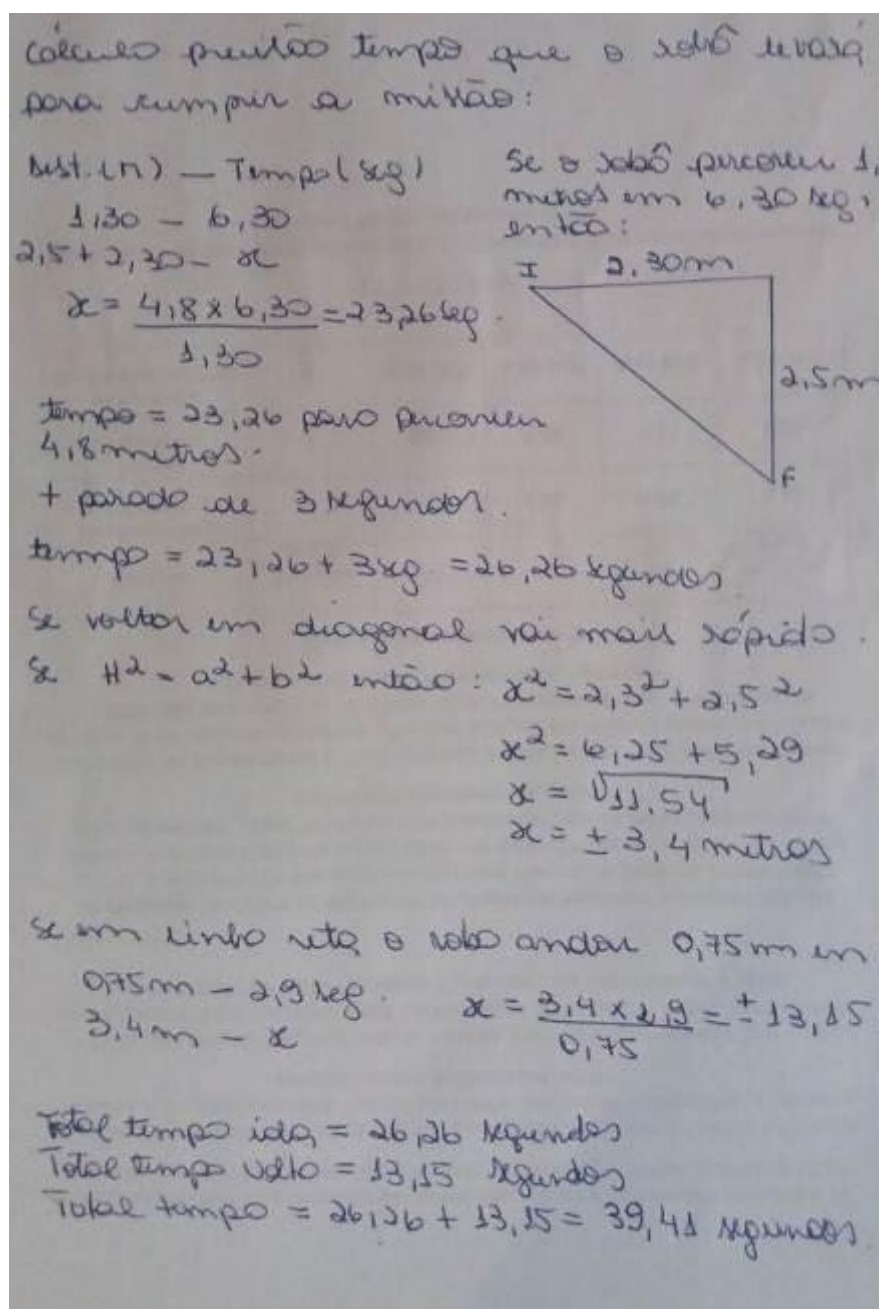 cálculo previsão tempo que o robô levará
para cumprir a missão:
Dist.(m) — Tempo(seg)
1,30 — 6,30
2,5 + 2,30 — x
x = 4,8 x 6,30 = 23,26 seg.
1,30
Se o robô percorreu 1,
metros em 6,30 seg,
então:
I 2,30m
2,5m
F
tempo = 23,26 para percorrer
4,8 metros.
+ parada de 3 segundos.
tempo = 23,26 + 3 seg = 26,26 segundos
Se voltar em diagonal vai mais rápido.
Se H² = a² + b² então: x² = 2,3² + 2,5²
x² = 6,25 + 5,29
x = √11,54
x = ± 3,4 metros
Se em linha reta o robo andou 0,75m em
0,75m — 2,9 seg.
3,4m — x
x = 3,4 x 2,9 = ± 13,15
0,75
Total tempo ida, = 26,26 segundos
Total tempo volta = 13,15 segundos
Total tempo = 26,26 + 13,15 = 39,41 segundos.